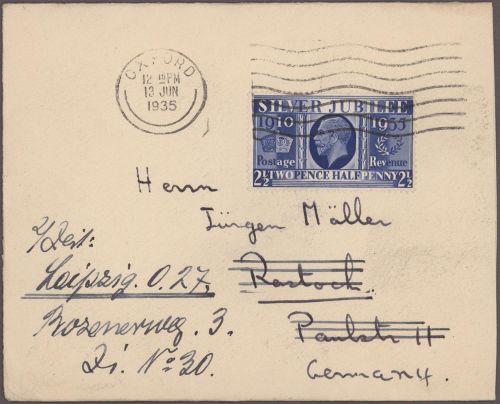 OXFORD
12 15 PM
13 JUN
1935
SILVER JUBILEE
1910 1935
Postage Revenue
2½ TWO PENCE HALFPENNY 2½
Herrn
Jürgen Möller
z/Zeit:
Leipzig. O. 27.
Rostock
Bozenerweg. 3.
Paulstr 11
Zi. No 30.
Germany.